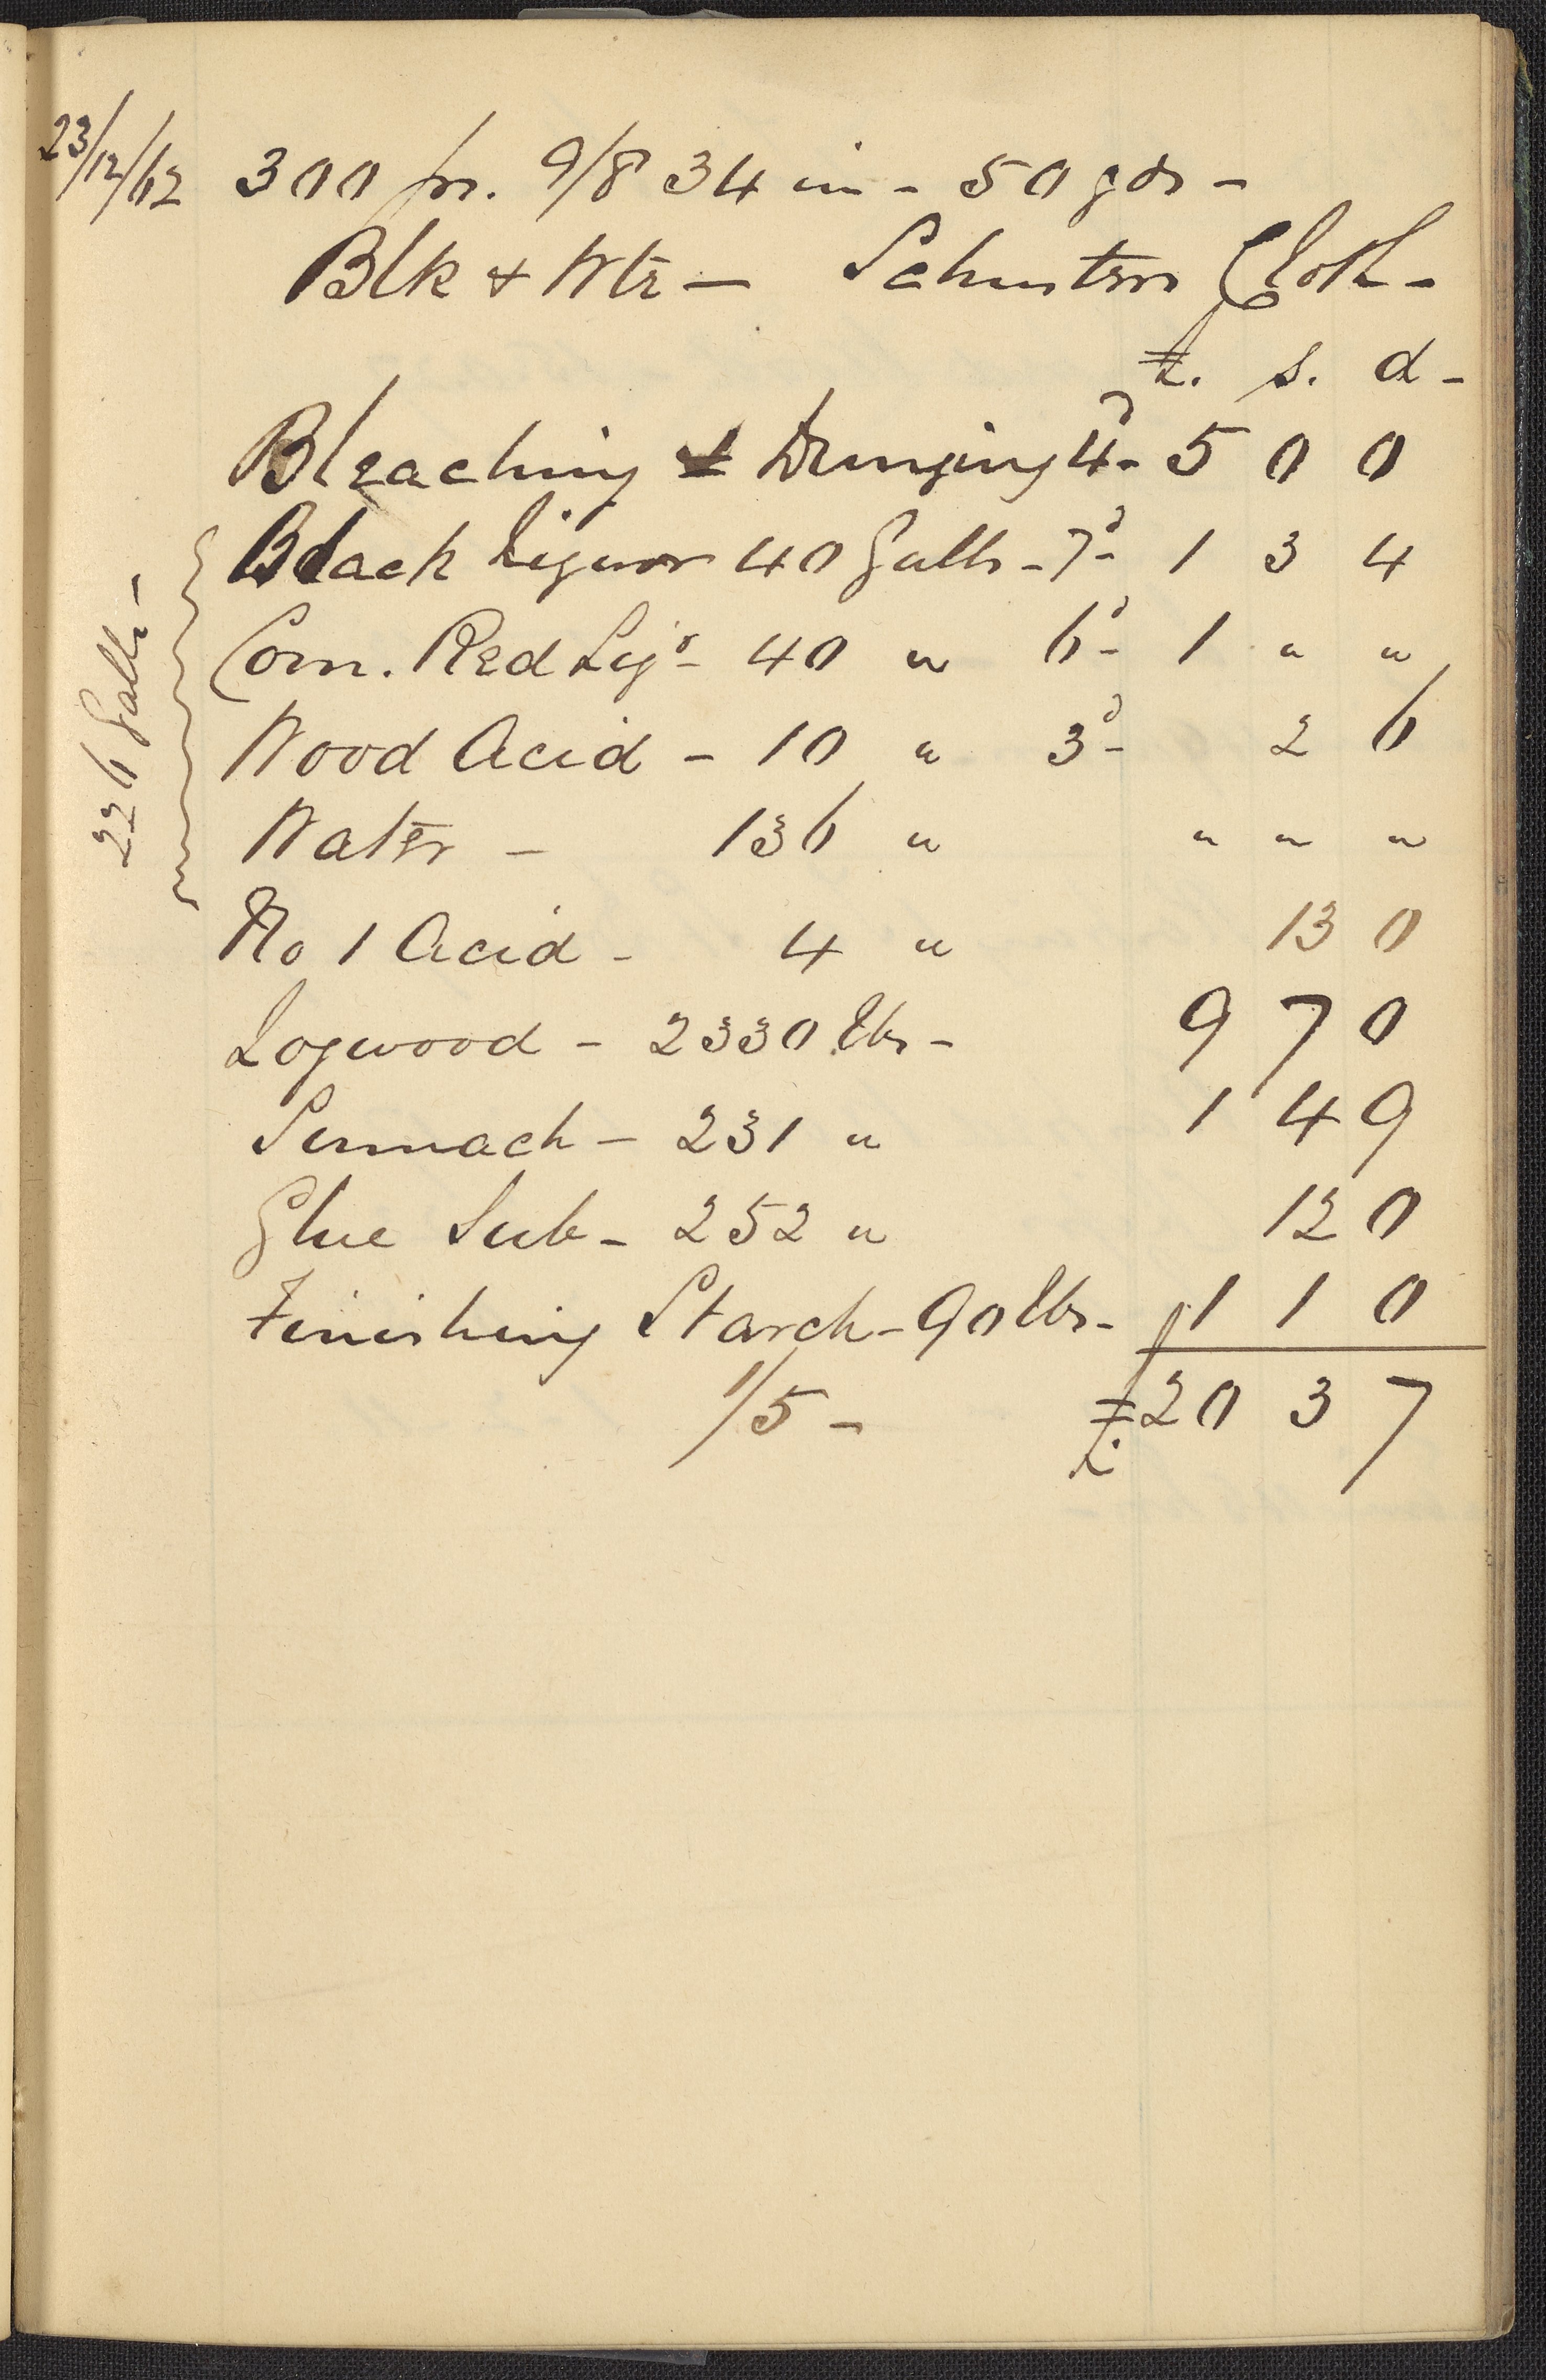 23/12/62 300 ps. 9/8 34 in - 50 yds -
Blk & Wte - Schusters Cloth -
£. s. d -
Bleaching & Dunging 4d - 5 0 0
Black Liquor 40 Galls - 7d - 1 3 4
Com. Red Liqr - 40 " 6d - 1 " "
Wood Acid - 10 " 3d - 2 6
Water - 136 " " " "
226 Galls -
No 1 Acid - 4 " 13 0
Logwood - 2330 lbs - 9 7 0
Sumach - 231 " 1 4 9
Glue Sub - 252 " 12 0
Finishing Starch - 90 lbs - 1 1 0
1/5 - £20 3 7